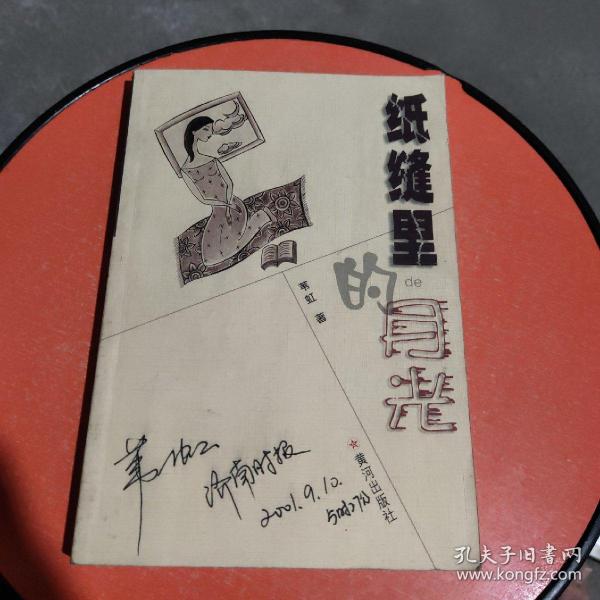 纸缝里
的
de
月光
苇虹 著
黄河出版社
苇虹
济南时报
2001.9.10.
孔夫子旧书网
www.kongfz.com